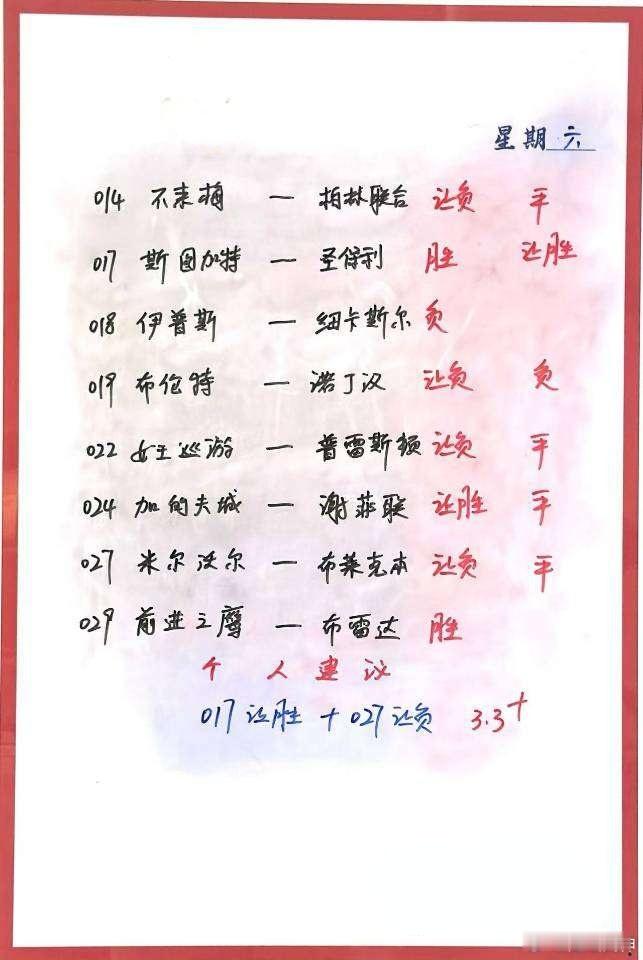 星期六
014 不来梅 — 柏林联合 让负 平
017 斯图加特 — 圣保利 胜 让胜
018 伊普斯 — 纽卡斯尔 负
019 布伦特 — 诺丁汉 让负 负
022 女王巡游 — 普雷斯顿 让负 平
024 加的夫城 — 谢菲联 让胜 平
027 米尔沃尔 — 布莱克本 让负 平
029 前进之鹰 — 布雷达 胜
个人建议
017 让胜 + 027 让负 3.3+